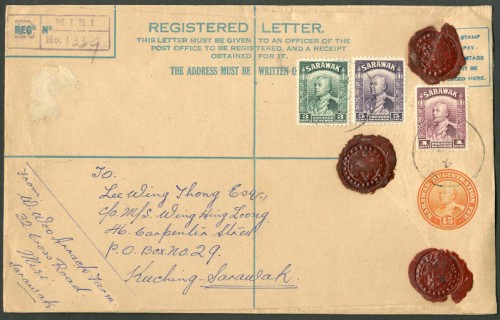 REGISTERED LETTER.
THIS LETTER MUST BE GIVEN TO AN OFFICER OF THE
POST OFFICE TO BE REGISTERED, AND A RECEIPT
OBTAINED FOR IT.
THE ADDRESS MUST BE WRITTEN O
REGD No
MIRI
No. 1339
STAMP
PAY
STAGE
T BE
CED HERE.
SARAWAK
3 3
SARAWAK
5 5
SARAWAK
1 1
15
To.
Lee Wing Thong Esq.,
c/o M/S. Wing Hing Loong
46. Carpenter Street
P.O. Box No. 29.
Kuching - Sarawak.
From:
32 Cross Road.
Miri
Sarawak